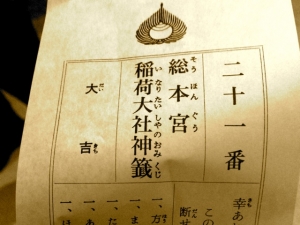 二十一番
総本宮
そうほんぐう
稲荷大社神籤
いなりたいしゃのおみくじ
大吉
だいきち
幸あ
この
断せ
一、方
一、ま
一、た
一、あ
一、は